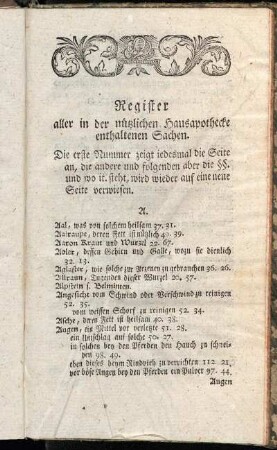 Register
aller in der nützlichen Hausapothecke
enthaltenen Sachen.
Die erste Nummer zeigt iedesmal die Seite
an, die andere und folgenden aber die §§.
und wo it. steht, wird wieder auf eine neue
Seite verwiesen.
A.
Aal, was von solchem heilsam 37. 31.
Aalraupe, deren Fett ist nützlich 40. 39.
Aaron Kraut und Wurzel 22. 67.
Adler, dessen Gehirn und Galle, wozu sie dienlich
32. 13.
Aglaster, wie solche zur Arznen zu gebrauchen 36. 26.
Allraun, Tugenden dieser Wurzel 20. 57.
Alpstein s. Belmintten.
Angesicht vom Schwind oder Verschwind zu reinigen
52. 35.
vom weissen Schorf zu reinigen 52. 34.
Asche, deren Fett ist heilsam 40. 38.
Augen, ein Mittel vor verletzte 51. 28.
ein Umschlag auf solche 50. 27.
in solchen bey den Pferden den Hauch zu schnei-
den 98. 49.
eben dieses beym Rindvieh zu verrichten 112 21.
vor böse Augen bey den Pferden ein Pulver 97. 44.
Augen